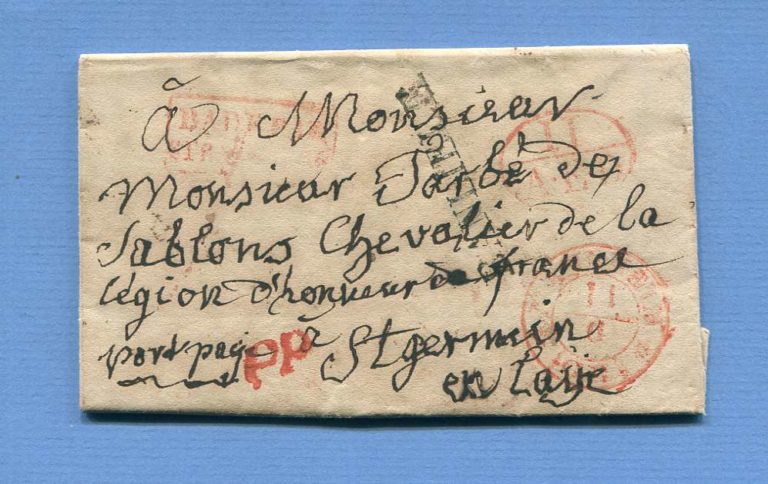 à Monsieur
Monsieur Tarbé des
Sablons Chevalier de la
légion d'honneur de france
port payé à St germain
PP
en Laÿe